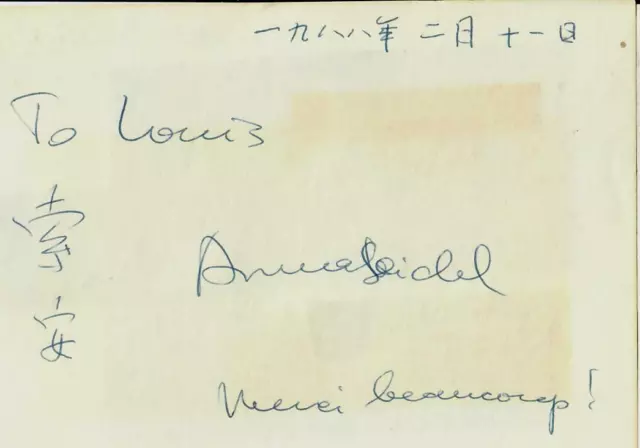 一九八八年 二月 十一日
To Louis
索安
Anna Seidel
Merci beaucoup!